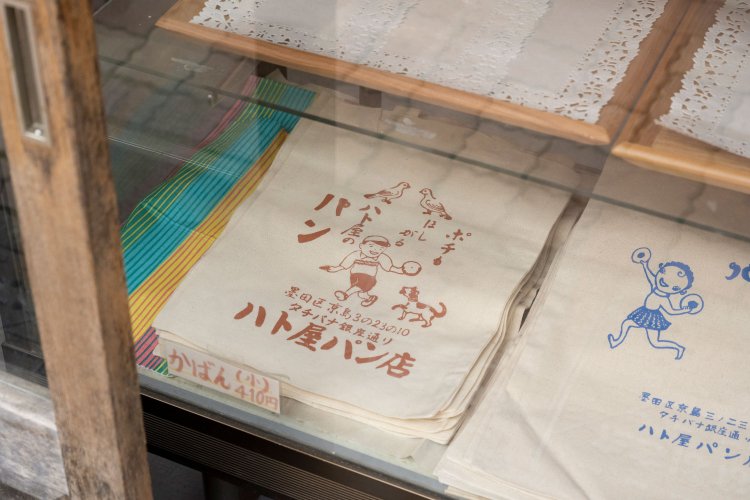 ポチも
はし
がる
ハト屋の
パン
墨田区京島3の23の10
タチバナ銀座通り
ハト屋パン店
かばん(小)
410円
墨田区京島三ノ二三
タチバナ銀座通り
ハト屋パン